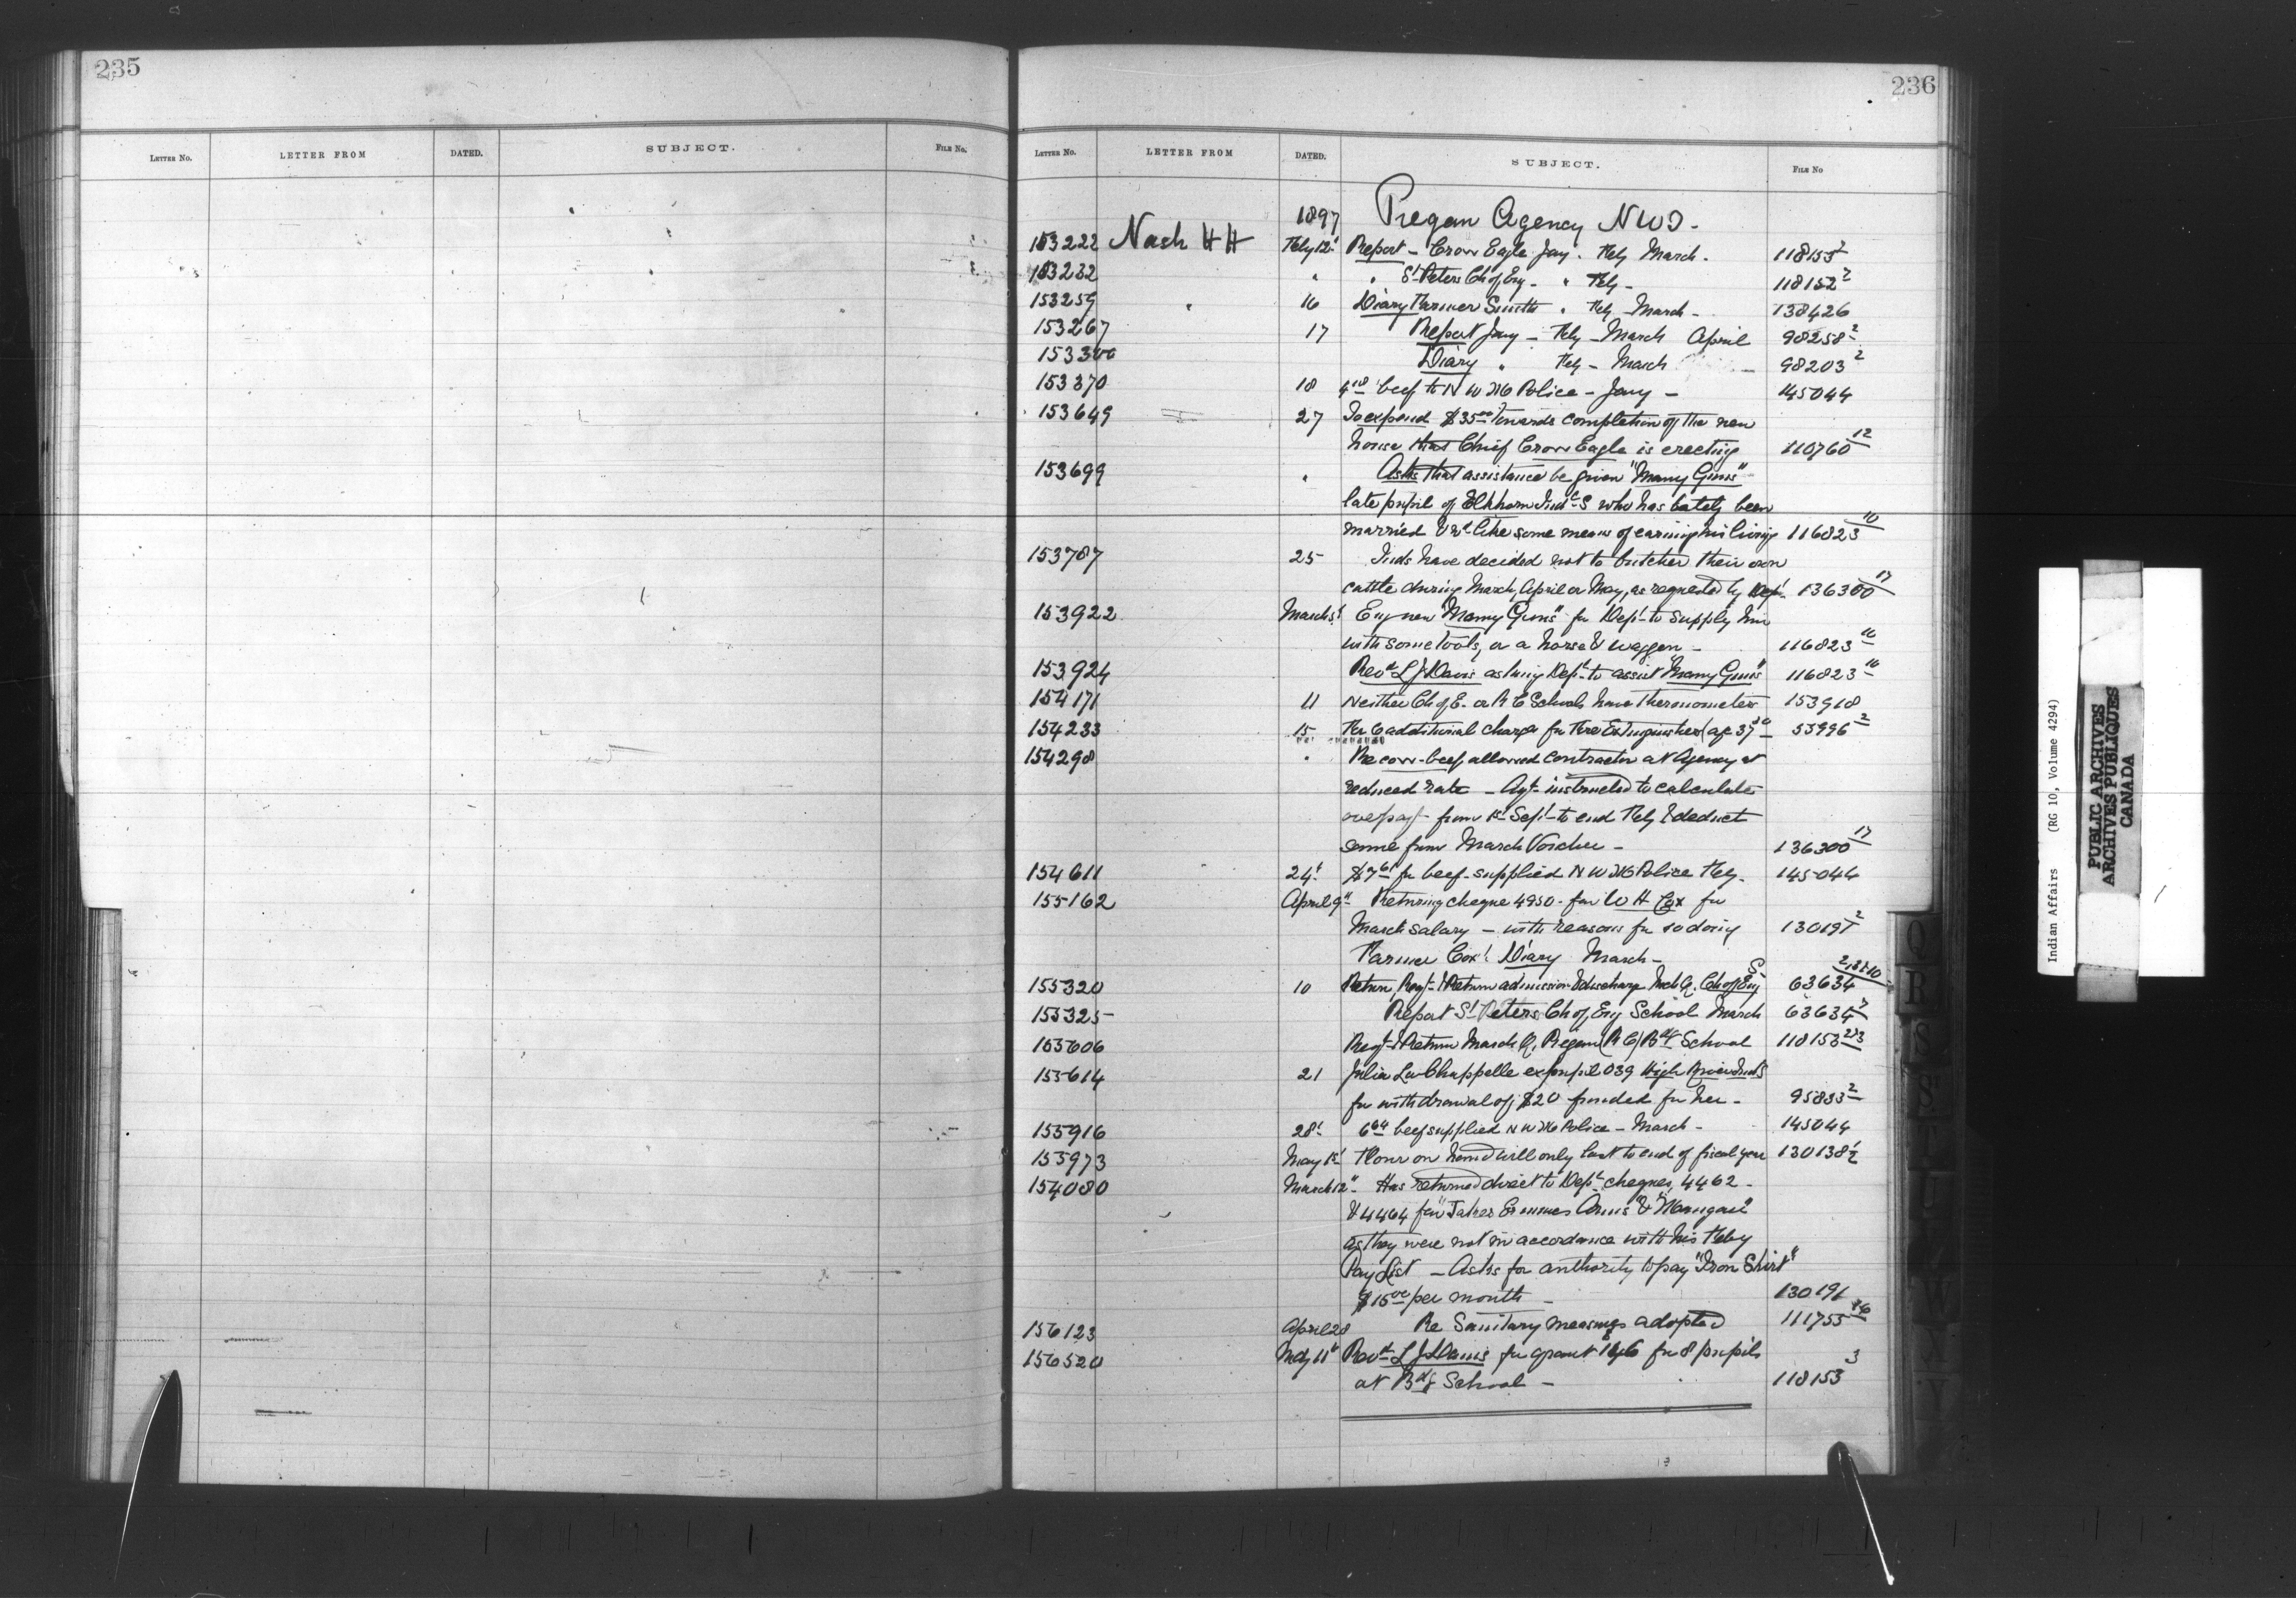 235
236
LETTER No. LETTER FROM DATED. SUBJECT. FILE No.
LETTER No. LETTER FROM DATED. SUBJECT. FILE No
1897 Piegan Agency NWT.
153222 Nash H H Feby 12t Report - Crow Eagle Jany. Feby March. 118153 2
153232 " " St Peters Ch of Eng - " Feby - 118152 2
153259 " 16 Diary Farmer Smith " Feby - March - 138426
153267 17 Report Jany - Feby - March April 98258 2
153300 Diary " Feby - March 98203 2
153370 18 beef to N W M Police - Jany - 145044
153649 27 To expend $35 00 towards completion of the new
house that Chief Crow Eagle is erecting 110760 12
153699 " Asks that assistance be given "Many Guns"
late pupil of Elkhorn Indl S who has lately been
married & wd like some means of earning his living 116823 10
153787 25 Inds have decided not to butcher their own
cattle during March, April or May, as requested by Dept 136300 17
153922 March 5t Enq new "Many Guns" for Dept to supply him
with some tools, or a horse & waggon - 116823 10
153924 Revd L J Davis asking Dept to assist "Many Guns" 116823 10
154171 11 Neither Ch of E. or R C Schools have thermometers 153918
154233 15 additional charge for Fire Extinguishers 55996 2
154298 " Re cow-beef allowed contractor at Agency at
reduced rate - Agt instructed to calculate
overpayt from 1st Sept to end Feby & deduct
same from March Voucher - 136300 17
154611 24t for beef supplied N W M Police Feby. 145044
155162 April 9" Returning cheque 4950 - for W H Cox for
March salary - with reasons for so doing 130191 2
Farmer Cox's Diary March -
155320 10 Return, Regt & Return admission & discharge Mch Q. Ch of Eng S. 63634
155325 Report St Peters Ch of Eng School March 63634 2
155606 Regt & Return March Q. Piegan (R C) Bdg School 118153 2&3
155614 21 Julia La Chappelle ex pupil 039 High River Indl S
for withdrawal of $20 funded for her - 95833 2
155916 28t 6 64 beef supplied N W M Police - March - 145044
155973 May 1st Flour on hand will only last to end of fiscal year 130138
154080 March 12" Has returned direct to Dept cheques, 4462 -
& 4464 for "Takes Enemies Arms" &
as they were not in accordance with his Feby
Pay List - Asks for authority to pay "Iron Shirt"
$15 00 per month - 130191
156123 April 28 Re Sanitary measures adopted 111755 16
156520 May 11t Revd L J Davis for grant for 8 pupils
at Bdg School - 118153 3
Indian Affairs (RG 10, Volume 4294)
PUBLIC ARCHIVES
ARCHIVES PUBLIQUES
CANADA
Q
R
S
W
Y